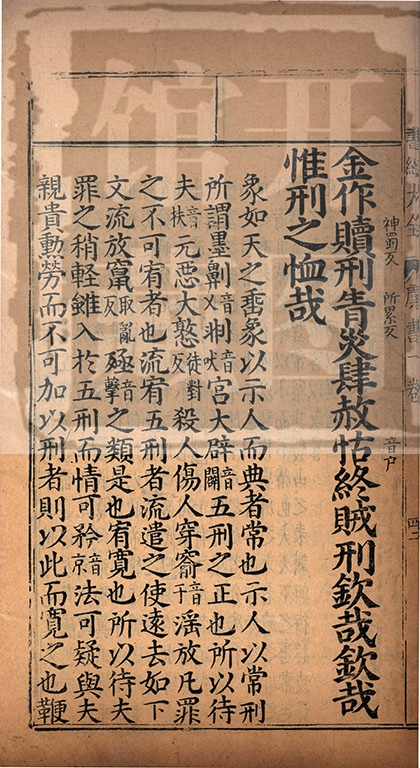 金作贖刑眚災肆赦怙終賊刑欽哉欽哉
神蜀反 所景反 音戶
惟刑之恤哉
象如天之垂象以示人而典者常也示人以常刑
所謂墨劓音乂剕音吠宮大辟音闢五刑之正也所以待
夫音扶元惡大憝徒對反殺人傷人穿窬音于滛放凡罪
之不可宥者也流宥五刑者流遣之使遠去如下
文流放竄取亂反殛音擊之類是也宥寬也所以待夫
罪之稍輕雖入於五刑而情可矜音京法可疑與夫
親貴勳勞而不可加以刑者則以此而寬之也鞭